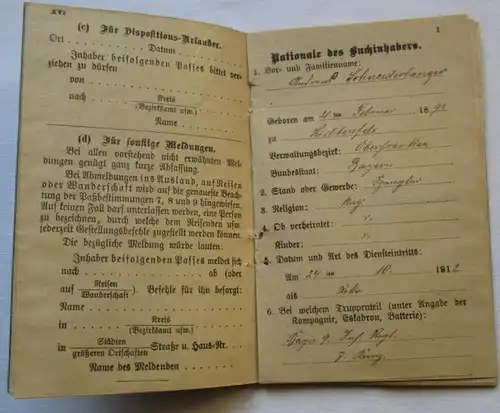 XVI
(c) Für Dispositions-Urlauber.
Ort Datum
Inhaber beifolgenden Passes bittet ver-
ziehen zu dürfen
von
nach Kreis
(Bezirksamt usw.)
Name
(d) Für sonstige Meldungen.
Bei allen vorstehend nicht erwähnten Mel-
dungen genügt ganz kurze Abfassung.
Bei Abmeldungen ins Ausland, auf Reisen
oder Wanderschaft wird auf die genaueste Beach-
tung der Paßbestimmungen 7, 8 und 9 hingewiesen.
Auf keinen Fall darf unterlassen werden, eine Person
zu bezeichnen, durch welche dem Reisenden usw.
jederzeit Gestellungsbefehle zugestellt werden können.
Die bezügliche Meldung würde lauten:
Inhaber beifolgenden Passes meldet sich
nach ab (oder
auf Reisen
Wanderschaft). Befehle für ihn besorgt:
Name
in Kreis
(Bezirksamt usw.)
in Städten
größeren Ortschaften Straße u. Haus-Nr.
Name des Meldenden
1
Nationale des Buchinhabers.
1. Vor- und Familienname:
Geboren am 4. ten Februar 1892
zu Lichtenfels
Verwaltungsbezirk: Oberfranken
Bundesstaat: Bayern
2. Stand oder Gewerbe: Spengler
3. Religion:
4. Ob verheiratet:
Kinder:
5. Datum und Art des Diensteintritts:
Am 24 ten 10. 1912
als
6. Bei welchem Truppenteil (unter Angabe der
Kompagnie, Eskadron, Batterie):
Bayr. 9. Inf. Regt.
7. Komp.